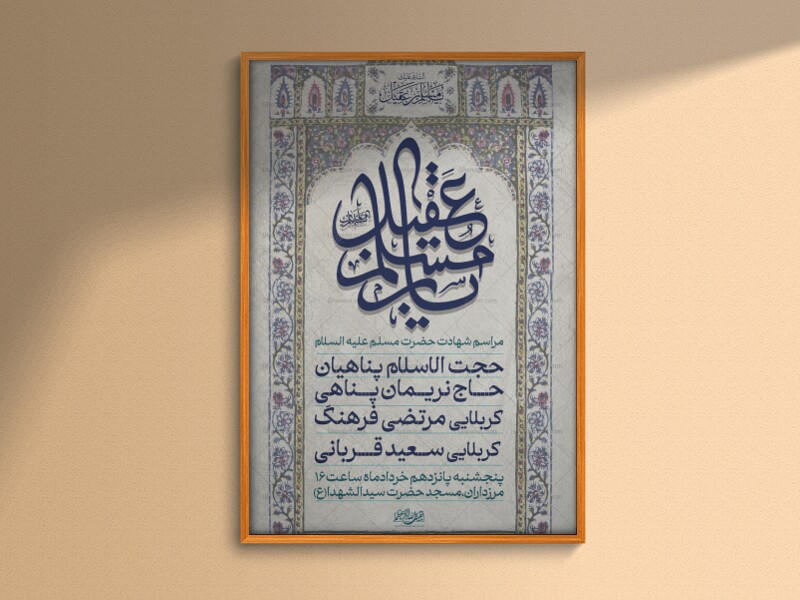 مسلم بن عقیل
یا مسلم بن عقیل
مراسم شهادت حضرت مسلم علیه السلام
حجت الاسلام پناهیان
حاج نریمان پناهی
کربلایی مرتضی فرهنگ
کربلایی سعید قربانی
پنجشنبه پانزدهم خردادماه ساعت ۱۶
مرزداران،مسجد حضرت سیدالشهدا(ع)